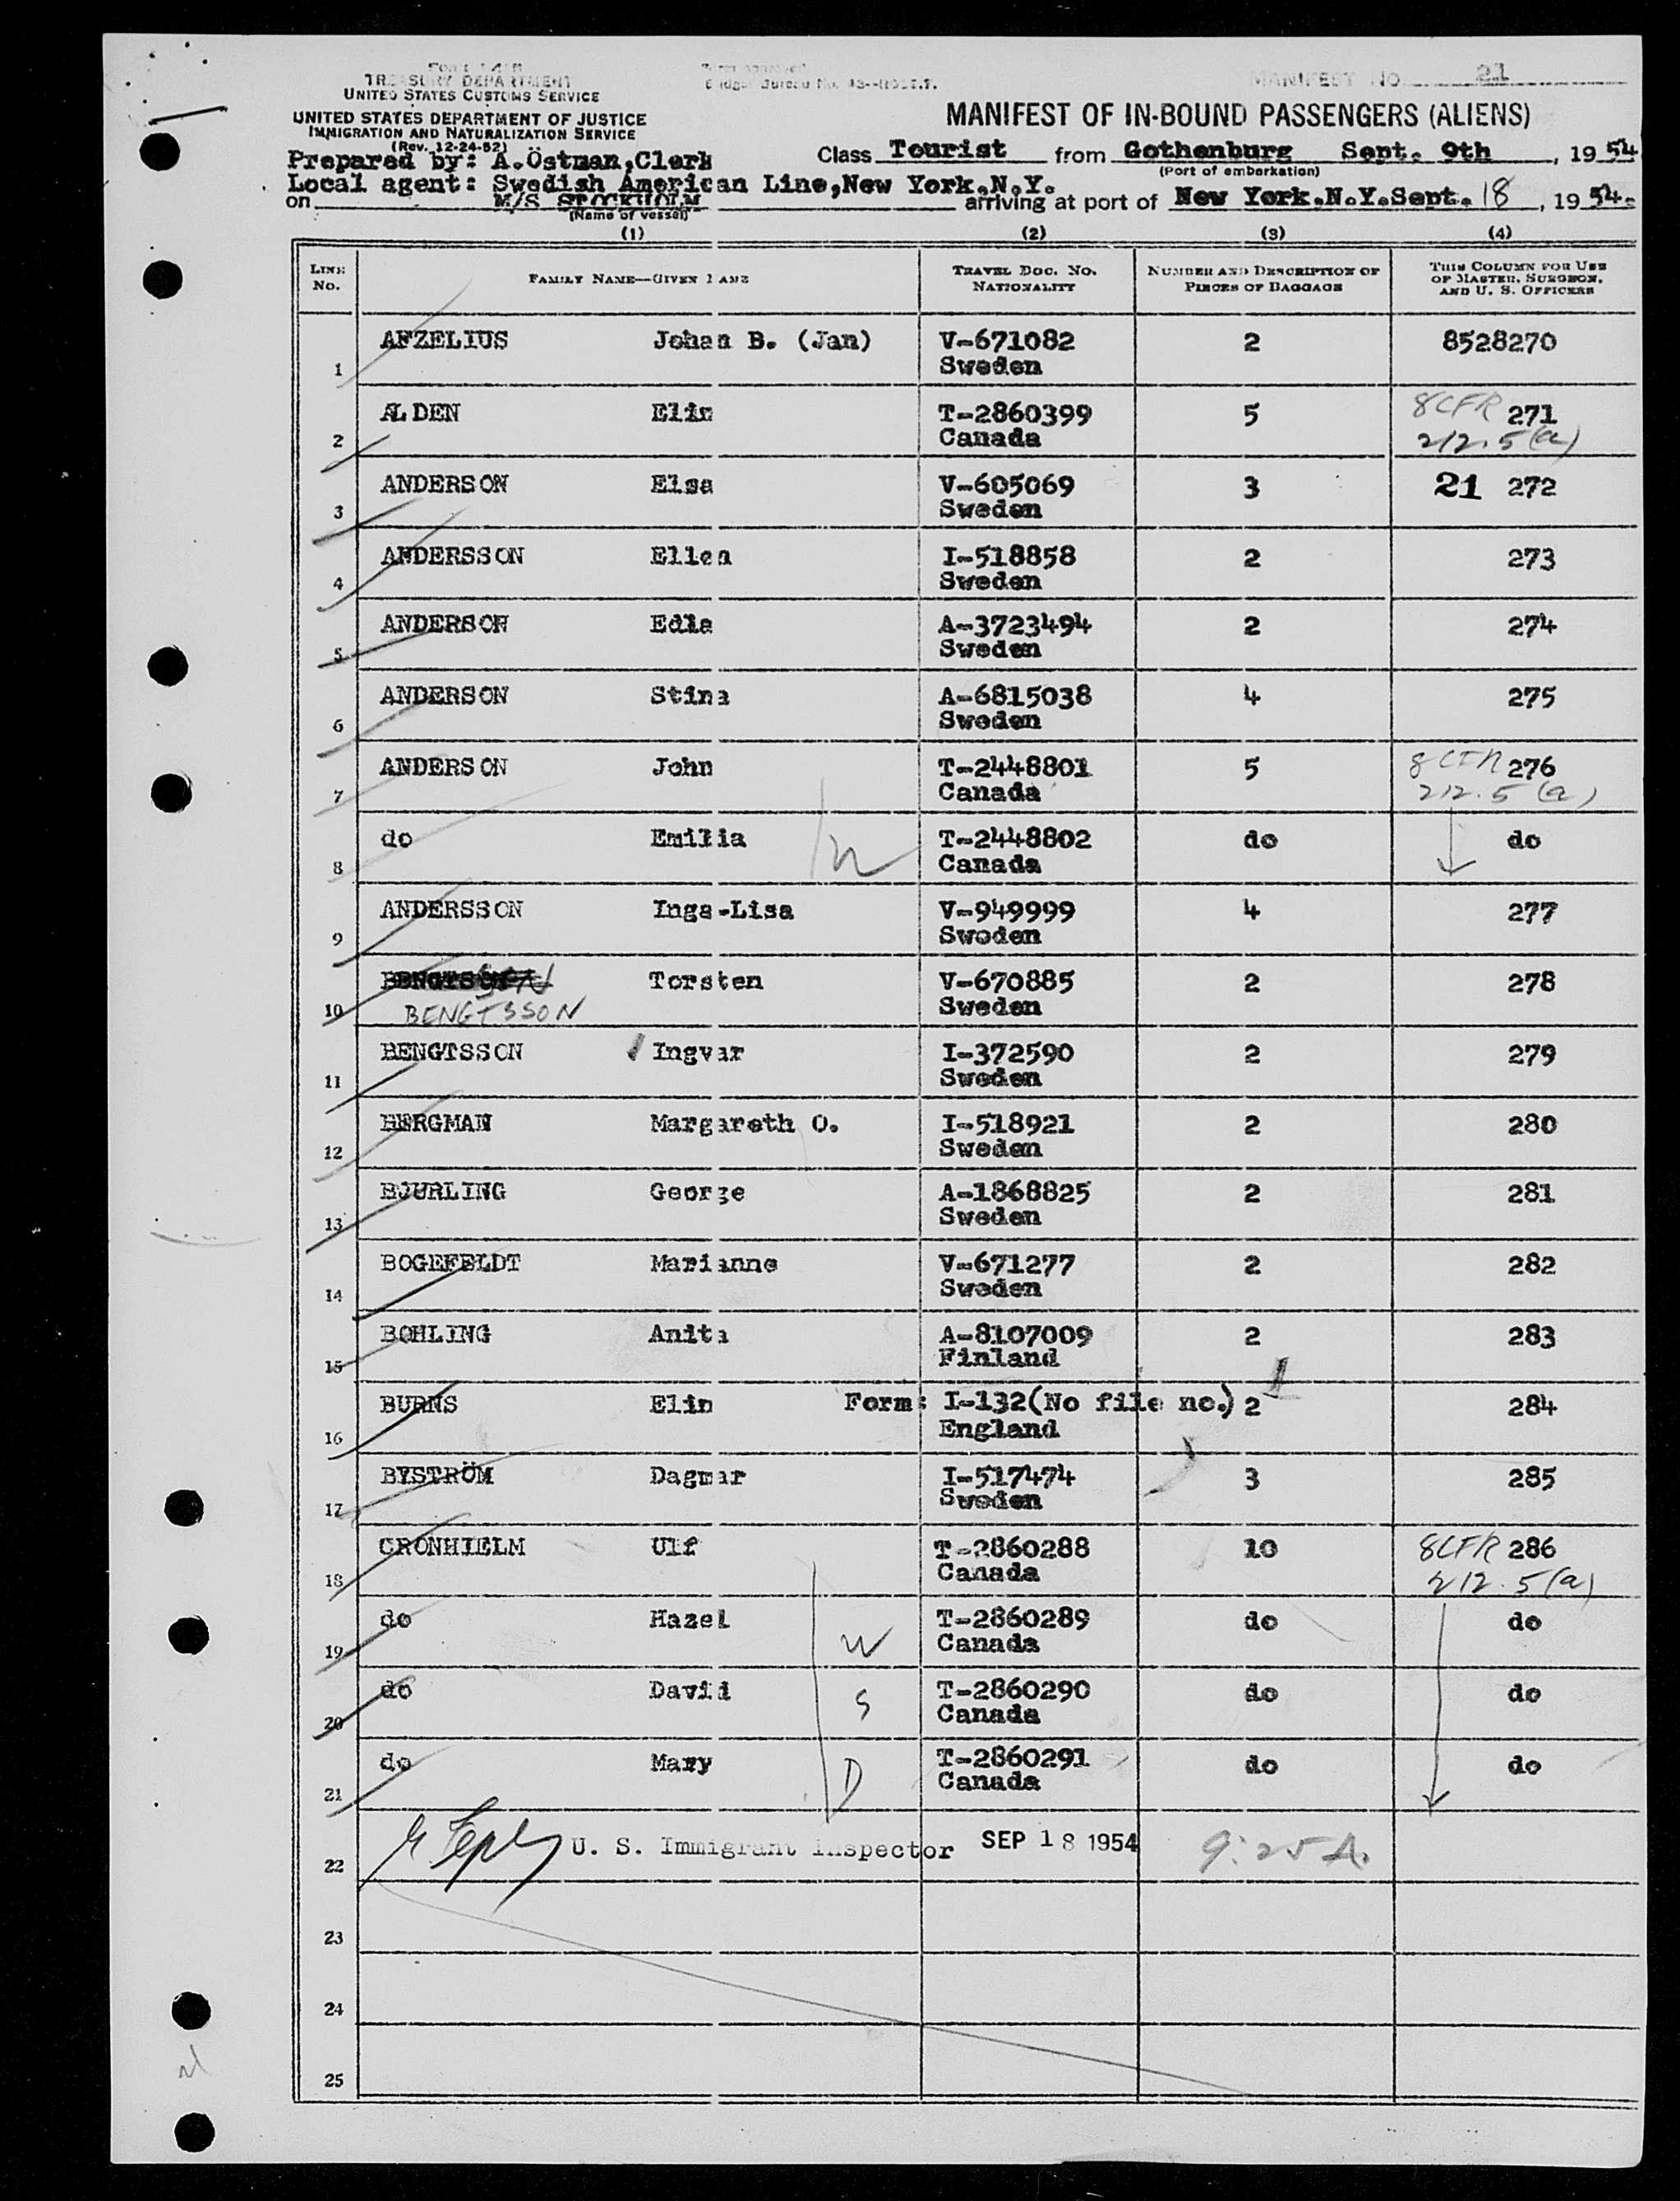 TREASURY DEPARTMENT
UNITED STATES CUSTOMS SERVICE
UNITED STATES DEPARTMENT OF JUSTICE
IMMIGRATION AND NATURALIZATION SERVICE
(Rev. 12-24-52)
MANIFEST NO. 21
MANIFEST OF IN-BOUND PASSENGERS (ALIENS)
Prepared by: A.Östman,Clerk
Class Tourist from Gothenburg Sept. 9th, 1954
(Port of embarkation)
Local agent: Swedish American Line,New York.N.Y.
on M/S STOCKHOLM arriving at port of New York.N.Y.Sept. 18, 1954.
(Name of vessel)
(1) (2) (3) (4)
LINE No. FAMILY NAME—GIVEN NAME TRAVEL DOC. NO. NATIONALITY NUMBER AND DESCRIPTION OF PIECES OF BAGGAGE THIS COLUMN FOR USE OF MASTER, SURGEON, AND U. S. OFFICERS
1 AFZELIUS Johan B. (Jan) V-671082 2 8528270
Sweden
2 ALDEN Elin T-2860399 5 8CFR 271
Canada 212.5(a)
3 ANDERSON Elsa V-605069 3 21 272
Sweden
4 ANDERSSON Ellen I-518858 2 273
Sweden
5 ANDERSON Edla A-3723494 2 274
Sweden
6 ANDERSON Stina A-6815038 4 275
Sweden
7 ANDERSON John T-2448801 5 8CFR 276
Canada 212.5(a)
8 do Emilia W T-2448802 do do
Canada
9 ANDERSSON Inga-Lisa V-949999 4 277
Sweden
10 Torsten V-670885 2 278
BENGTSSON Sweden
11 BENGTSSON Ingvar I-372590 2 279
Sweden
12 BERGMAN Margareth O. I-518921 2 280
Sweden
13 BJURLING George A-1868825 2 281
Sweden
14 BOGEFELDT Marianne V-671277 2 282
Sweden
15 BOHLING Anita A-8107009 2 283
Finland
16 BURNS Elin Form: I-132(No file no.) 2 284
England
17 BYSTRÖM Dagmar I-517474 3 285
Sweden
18 CRONHIELM Ulf T-2860288 10 8CFR 286
Canada 212.5(a)
19 do Hazel W T-2860289 do do
Canada
20 do David S T-2860290 do do
Canada
21 do Mary D T-2860291 do do
Canada
22 U. S. Immigrant Inspector SEP 18 1954 9:25 A.
23
24
25